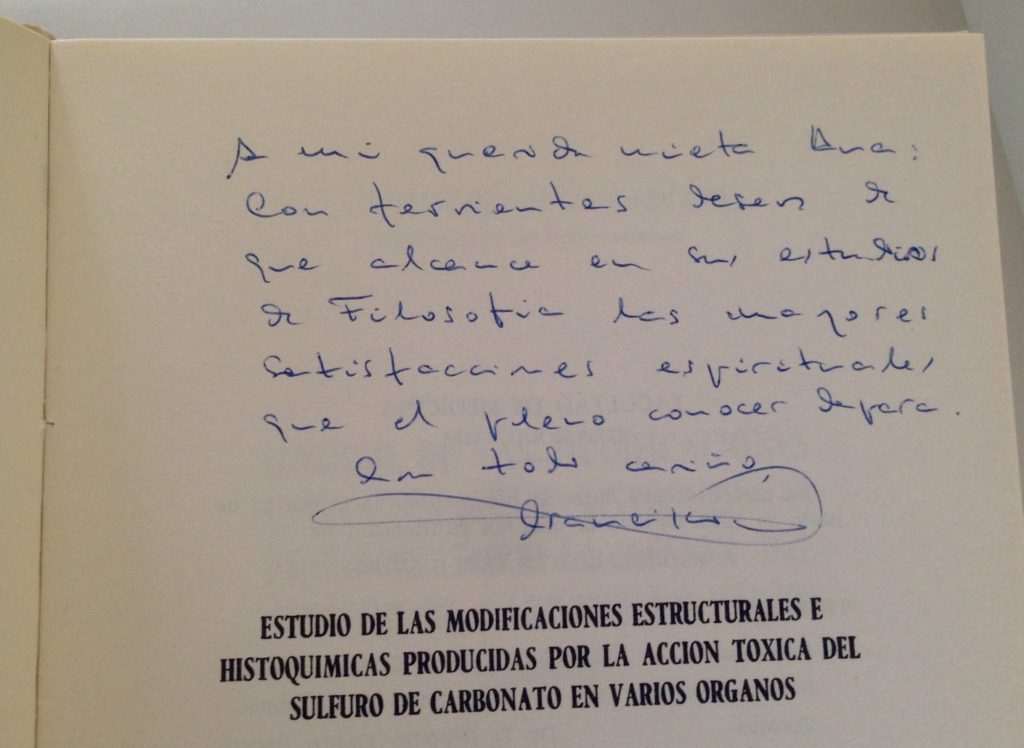 A mi querida nieta Ana:
Con fervientes deseos de
que alcance en sus estudios
de Filosofia las mayores
satisfacciones espirituales
que el pleno conocer depara.
Con todo cariño,
Francisco
ESTUDIO DE LAS MODIFICACIONES ESTRUCTURALES E
HISTOQUIMICAS PRODUCIDAS POR LA ACCION TOXICA DEL
SULFURO DE CARBONATO EN VARIOS ORGANOS